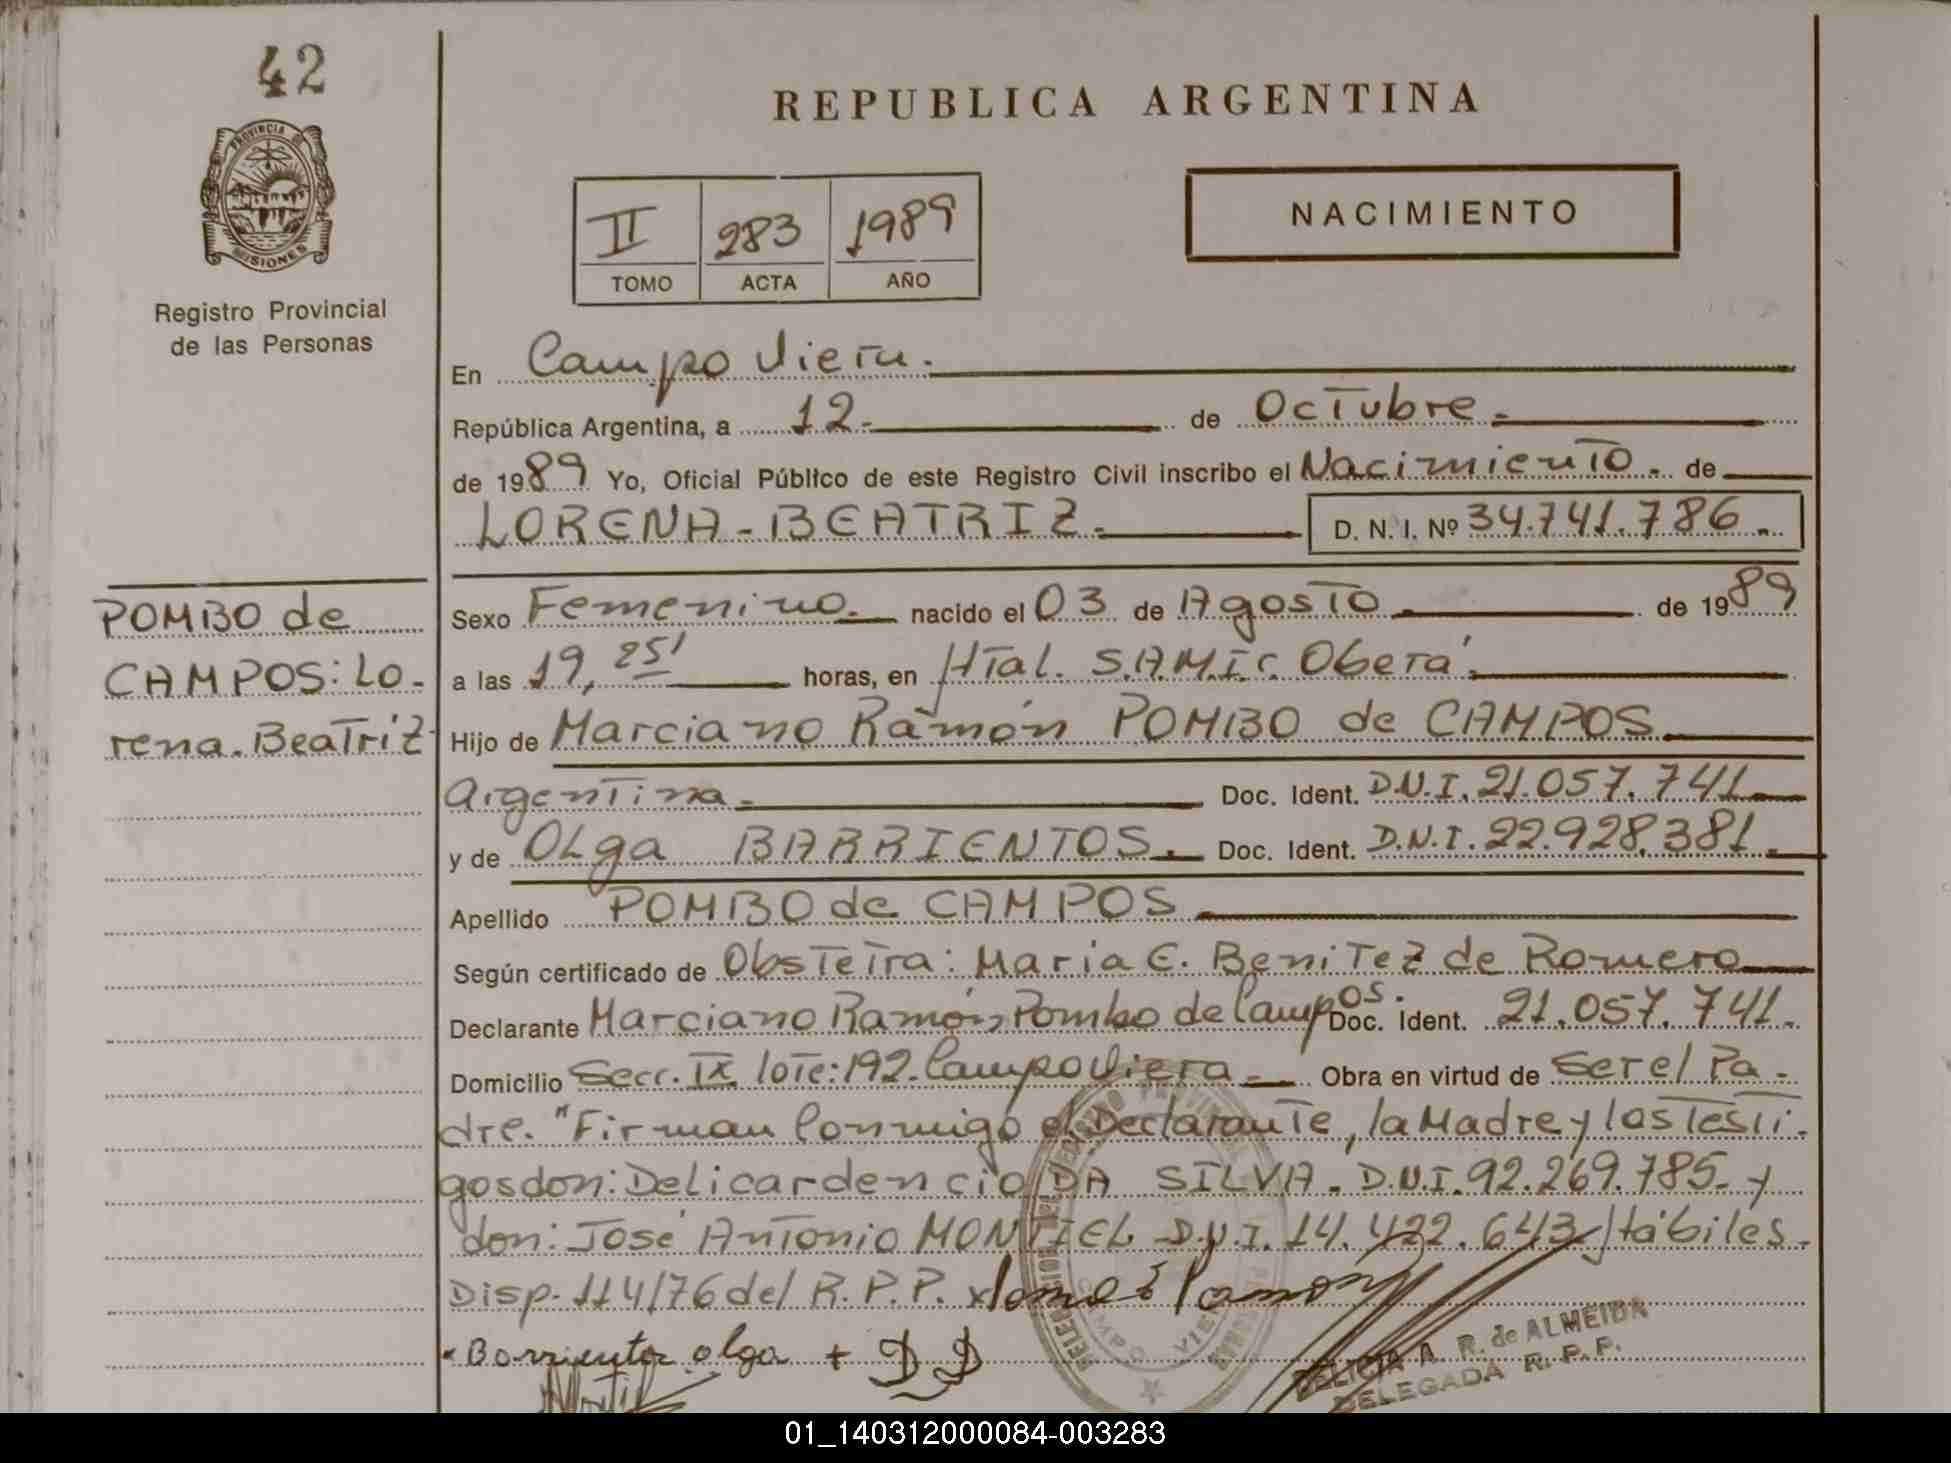 42
PROVINCIA DE
MISIONES
Registro Provincial
de las Personas
REPUBLICA ARGENTINA
II 283 1989
TOMO ACTA AÑO
NACIMIENTO
En Campo Viera.
República Argentina, a 12.- de Octubre.-
de 1989 Yo, Oficial Público de este Registro Civil inscribo el Nacimiento. de
LORENA-BEATRIZ.- D. N. I. Nº 34.741.786.-
POMBO de
CAMPOS: Lo-
rena. Beatriz
Sexo Femenino. nacido el 03 de Agosto.- de 1989
a las 19,25' horas, en Htal. S.A.M.I.C. Oberá.-
Hijo de Marciano Ramón POMBO de CAMPOS.
Argentina.- Doc. Ident. D.N.I. 21.057.741.
y de OLga BARRIENTOS.- Doc. Ident. D.N.I. 22.928.381.-
Apellido POMBO de CAMPOS
Según certificado de Obstetra: Maria E. Benitez de Romero
Declarante Marciano Ramón Pombo de Campos. Doc. Ident. 21.057.741.
Domicilio Secc. IX lote: 192. Campo Viera.- Obra en virtud de Ser el Pa-
dre. "Firman Conmigo el Declarante, la Madre y los Testi-
gos don: Delicardencio DA SILVA. D.N.I. 92.269.785.- y
don: José Antonio MONTIEL D.N.I. 14.422.643 Hábiles.
Disp. 114/76 del R.P.P. x
Barrientos olga + D D
DELICIA A. R. de ALMEIDA
DELEGADA R. P. P.
01_140312000084-003283